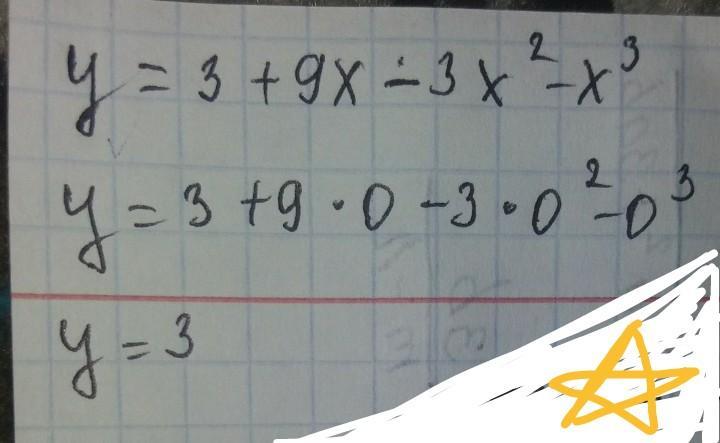 y = 3 + 9x - 3x² - x³
y = 3 + 9 · 0 - 3 · 0² - 0³
y = 3